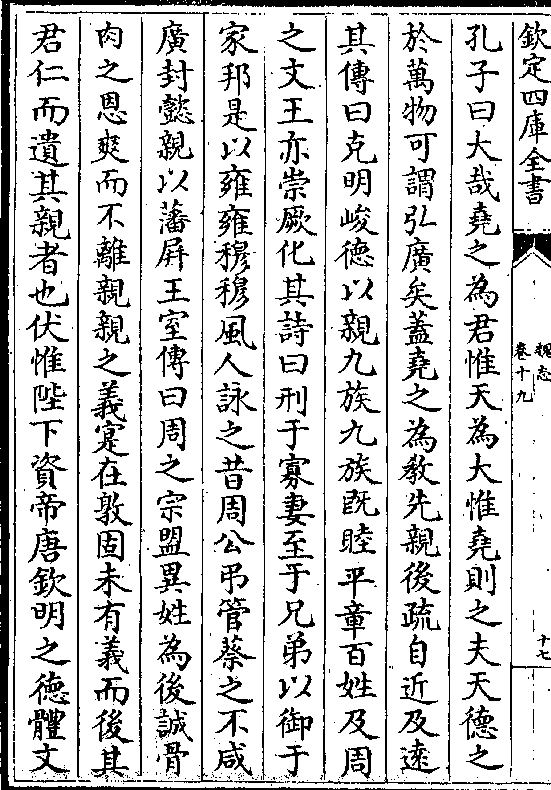 欽定四庫全書
魏志
卷十九
十七
孔子曰大哉堯之為君惟天為大惟堯則之夫天德之
於萬物可謂弘廣矣蓋堯之為教先親後疏自近及遠
其傳曰克明峻德以親九族九族既睦平章百姓及周
之文王亦崇厥化其詩曰刑于寡妻至于兄弟以御于
家邦是以雍雍穆穆風人詠之昔周公弔管蔡之不咸
廣封懿親以藩屏王室傳曰周之宗盟異姓為後誠骨
肉之恩爽而不離親親之義寔在敦固未有義而後其
君仁而遺其親者也伏惟陛下資帝唐欽明之德體文